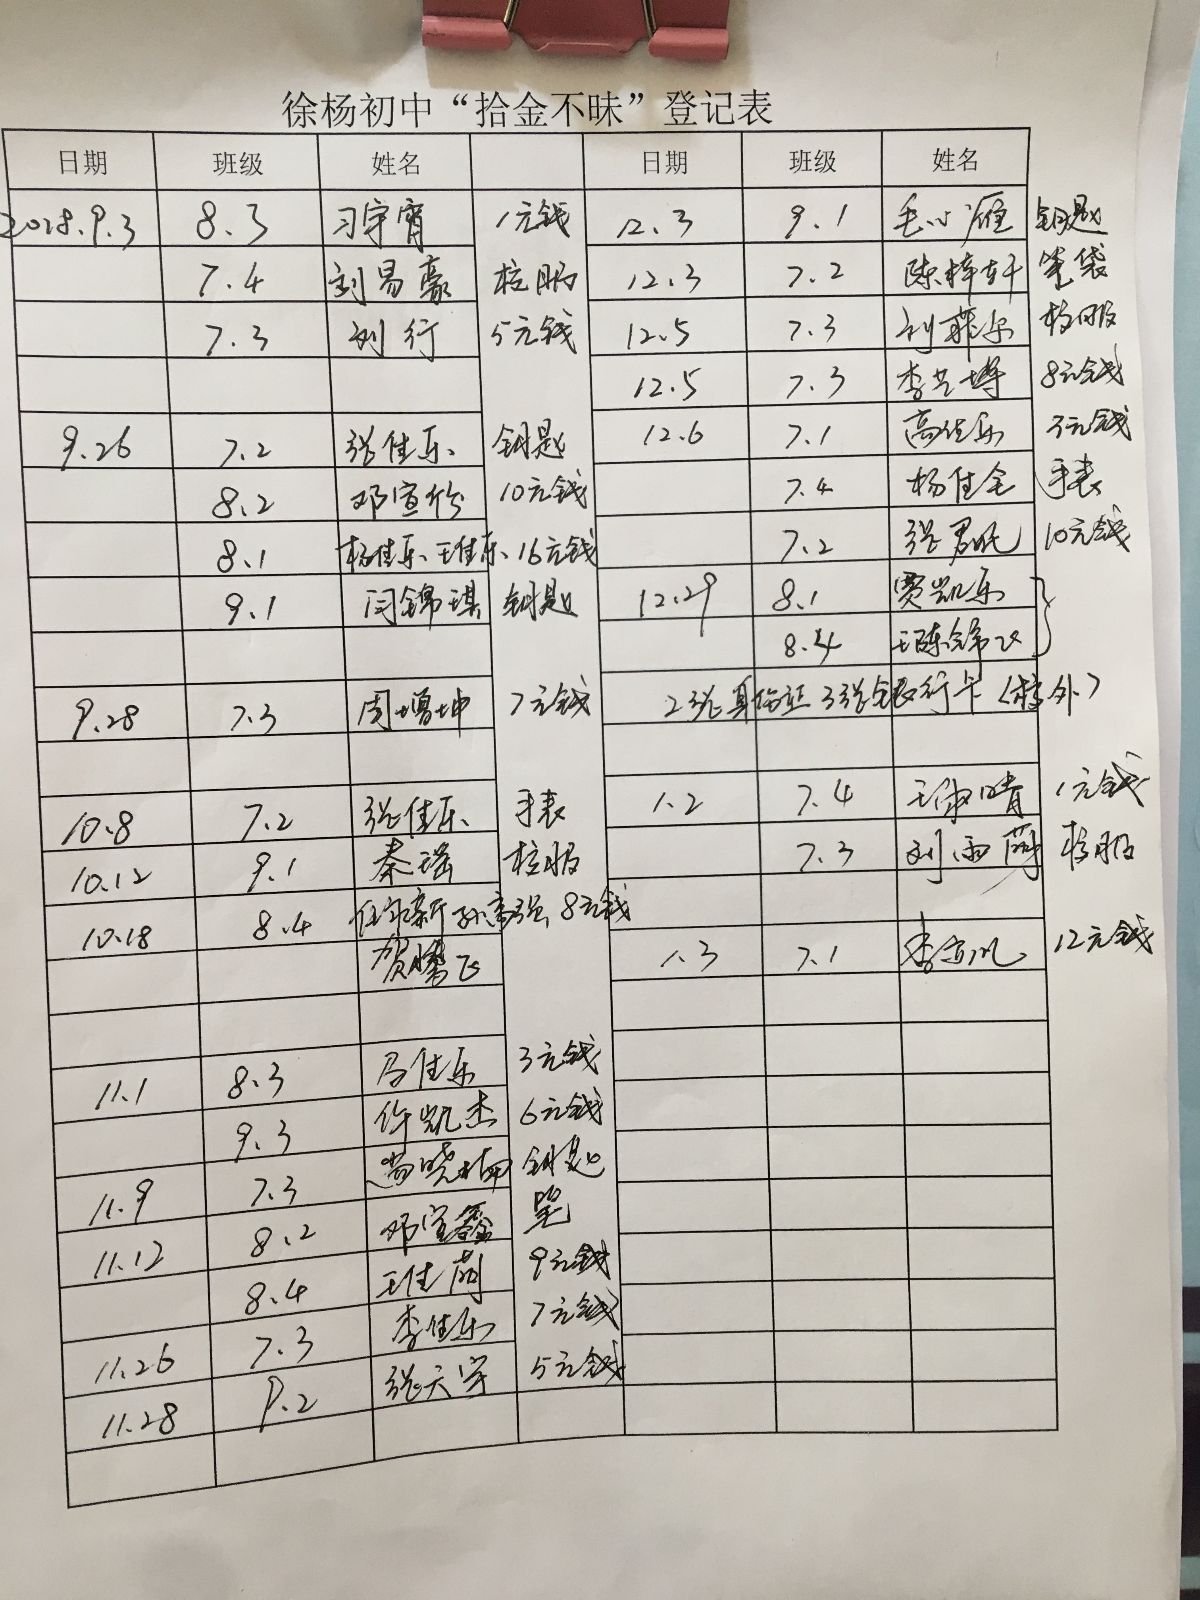 徐杨初中“拾金不昧”登记表
日期 班级 姓名 日期 班级 姓名
2018.9.3 8.3 习宇宵 1元钱 12.3 9.1 毛心雁 钥匙
7.4 刘易豪 校服 12.3 7.2 陈梓轩 笔袋
7.3 刘行 5元钱 12.5 7.3 刘菲尔 校服
12.5 7.3 李艺博 8元钱
9.26 7.2 张佳乐 钥匙 12.6 7.1 高佳乐 3元钱
8.2 邓宣 10元钱 7.4 杨佳 手表
8.1 杨佳乐、王佳乐、16元钱 7.2 张君 10元钱
9.1 闫锦琪 钥匙 12.29 8.1 贾凯乐
8.4 王陈锦飞
9.28 7.3 周增坤 7元钱 2张身份证3张银行卡(校外)
10.8 7.2 张佳乐 手表 1.2 7.4 王淑晴 1元钱
10.12 9.1 秦瑶 校服 7.3 刘雨萌 校服
10.18 8.4 任家新 孙高强、8元钱
贺腾飞 1.3 7.1 李 12元钱
11.1 8.3 马佳乐 3元钱
9.3 许凯杰 6元钱
11.9 7.3 晓楠 钥匙
11.12 8.2 邓宣鑫
8.4 王佳萌 9元钱
11.26 7.3 李佳乐 7元钱
11.28 9.2 张天宇 5元钱